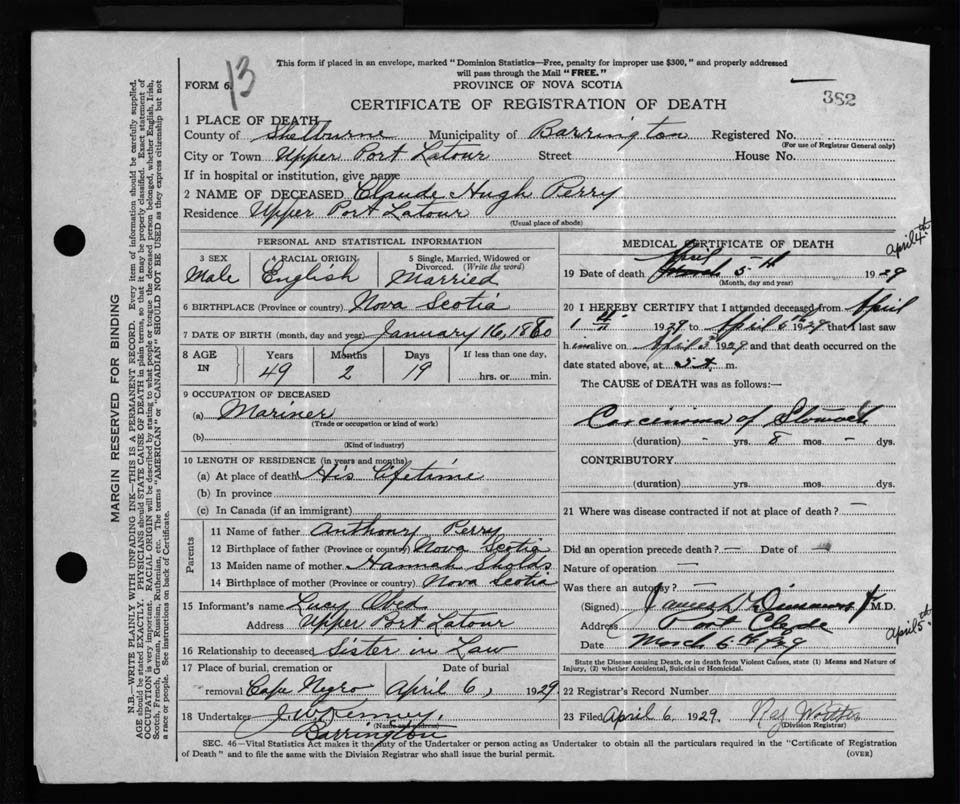 This form if placed in an envelope, marked "Dominion Statistics—Free, penalty for improper use $300," and properly addressed
will pass through the Mail "FREE."
FORM 6. 13
PROVINCE OF NOVA SCOTIA
382
CERTIFICATE OF REGISTRATION OF DEATH
1 PLACE OF DEATH
County of Shelburne Municipality of Barrington Registered No.
(For use of Registrar General only)
City or Town Upper Port Latour Street House No.
If in hospital or institution, give name
2 NAME OF DECEASED Claude Hugh Perry
Residence Upper Port Latour
(Usual place of abode)
PERSONAL AND STATISTICAL INFORMATION
3 SEX 4 RACIAL ORIGIN 5 Single, Married, Widowed or
Divorced. (Write the word)
Male English Married
6 BIRTHPLACE (Province or country) Nova Scotia
7 DATE OF BIRTH (month, day and year) January 16, 1880
8 AGE IN Years Months Days If less than one day,
49 2 19 hrs. or min.
9 OCCUPATION OF DECEASED
(a) Mariner
(Trade or occupation or kind of work)
(b)
(Kind of industry)
10 LENGTH OF RESIDENCE (in years and months)
(a) At place of death His Lifetime
(b) In province
(c) In Canada (if an immigrant)
Parents
11 Name of father Anthony Perry
12 Birthplace of father (Province or country) Nova Scotia
13 Maiden name of mother Hannah
14 Birthplace of mother (Province or country) Nova Scotia
15 Informant's name Lucy Obed
Address Upper Port Latour
16 Relationship to deceased Sister in Law
17 Place of burial, cremation or Date of burial
removal Cape Negro April 6, 1929
18 Undertaker
(Name and address)
Barrington
MEDICAL CERTIFICATE OF DEATH
April 4th
April
19 Date of death March 5th 1929
(Month, day and year)
20 I HEREBY CERTIFY that I attended deceased from April
1929 to April 1929 that I last saw
him alive on April 1929 and that death occurred on the
date stated above, at m.
The CAUSE OF DEATH was as follows:—
Carcinoma of Stomach
(duration) - yrs. 8 mos. - dys.
CONTRIBUTORY
(duration) yrs. mos. dys.
21 Where was disease contracted if not at place of death? —
Did an operation precede death? — Date of —
Nature of operation —
Was there an autopsy? —
(Signed) M.D.
Address Port Clyde
April 5th
Date March 5th/29
State the Disease causing Death, or in death from Violent Causes, state (1) Means and Nature of
Injury, (2) whether Accidental, Suicidal or Homicidal.
22 Registrar's Record Number
23 Filed April 6 1929.
(Division Registrar)
SEC. 46—Vital Statistics Act makes it the duty of the Undertaker or person acting as Undertaker to obtain all the particulars required in the "Certificate of Registration
of Death" and to file the same with the Division Registrar who shall issue the burial permit.
(OVER)
MARGIN RESERVED FOR BINDING
N.B.—WRITE PLAINLY WITH UNFADING INK—THIS IS A PERMANENT RECORD. Every item of information should be carefully supplied.
AGE should be stated EXACTLY. PHYSICIANS should STATE CAUSE OF DEATH in plain terms, so that it may be properly classified. Exact statement of
OCCUPATION is very important. RACIAL ORIGIN will be described by stating to what people or tongue the deceased person belonged, whether English, Irish,
Scotch, French, German, Russian, Ruthenian, etc. The terms "AMERICAN" or "CANADIAN" SHOULD NOT BE USED as they express citizenship but not
a race or people. See instructions on back of Certificate.